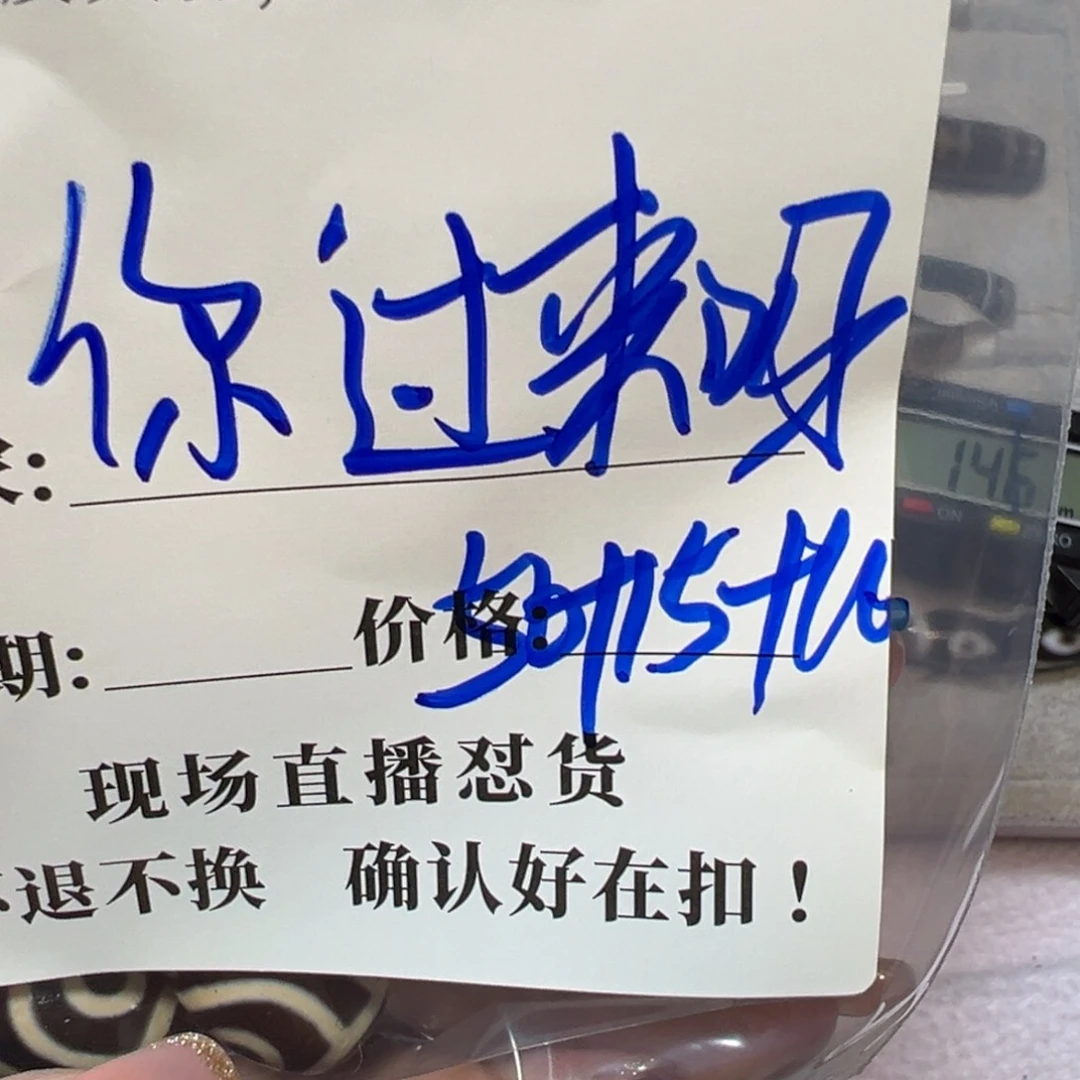 你过来呀
期: 价格: 30+115+
现场直播怼货
退不换 确认好在扣!
14.6
ON